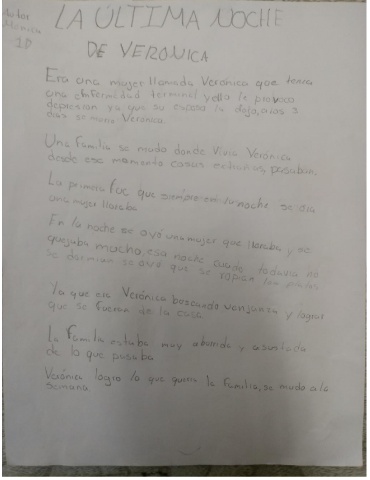 LA ÚLTIMA NOCHE
DE VERONICA
1D
Era una mujer llamada Verónica que tenia
una enfermedad terminal y ella le provoco
depresion ya que su esposo la dejo, a los 3
dias se murio Verónica.
Una familia se mudo donde Vivia Verónica
desde ese momento cosas extrañas, pasaban.
La primera fue que siempre en la noche se oia
una mujer lloraba
En la noche se oyó una mujer que lloraba y se
quejaba mucho, esa noche cuando todavia no
se dormian se oyó que se rompian los platos
Ya que era Verónica buscando venganza y lograr
que se fueran de la casa
La familia estaba muy aburrida y asustada
de lo que pasaba
Verónica logro lo que queria la familia, se mudo a la
semana